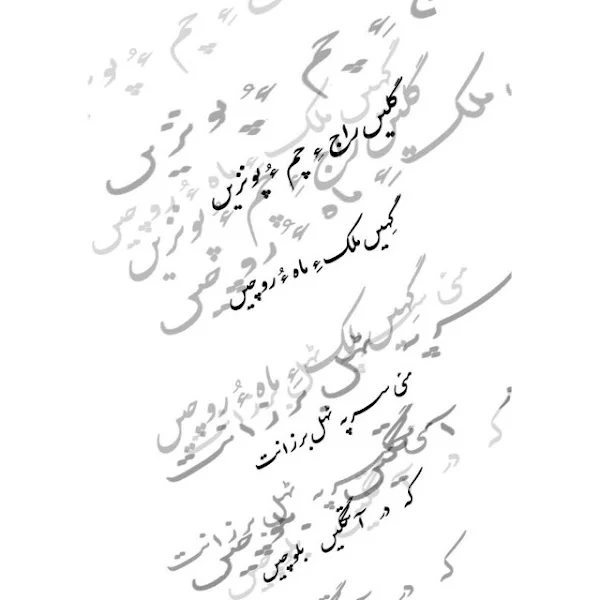 گلیں راج ءِ چم ءُ پونزیں
گہیں ملک ءِ ماہ ءُ روچیں
منی سر پہ تہل برزانت
کہ در آتگیں بلوچیں